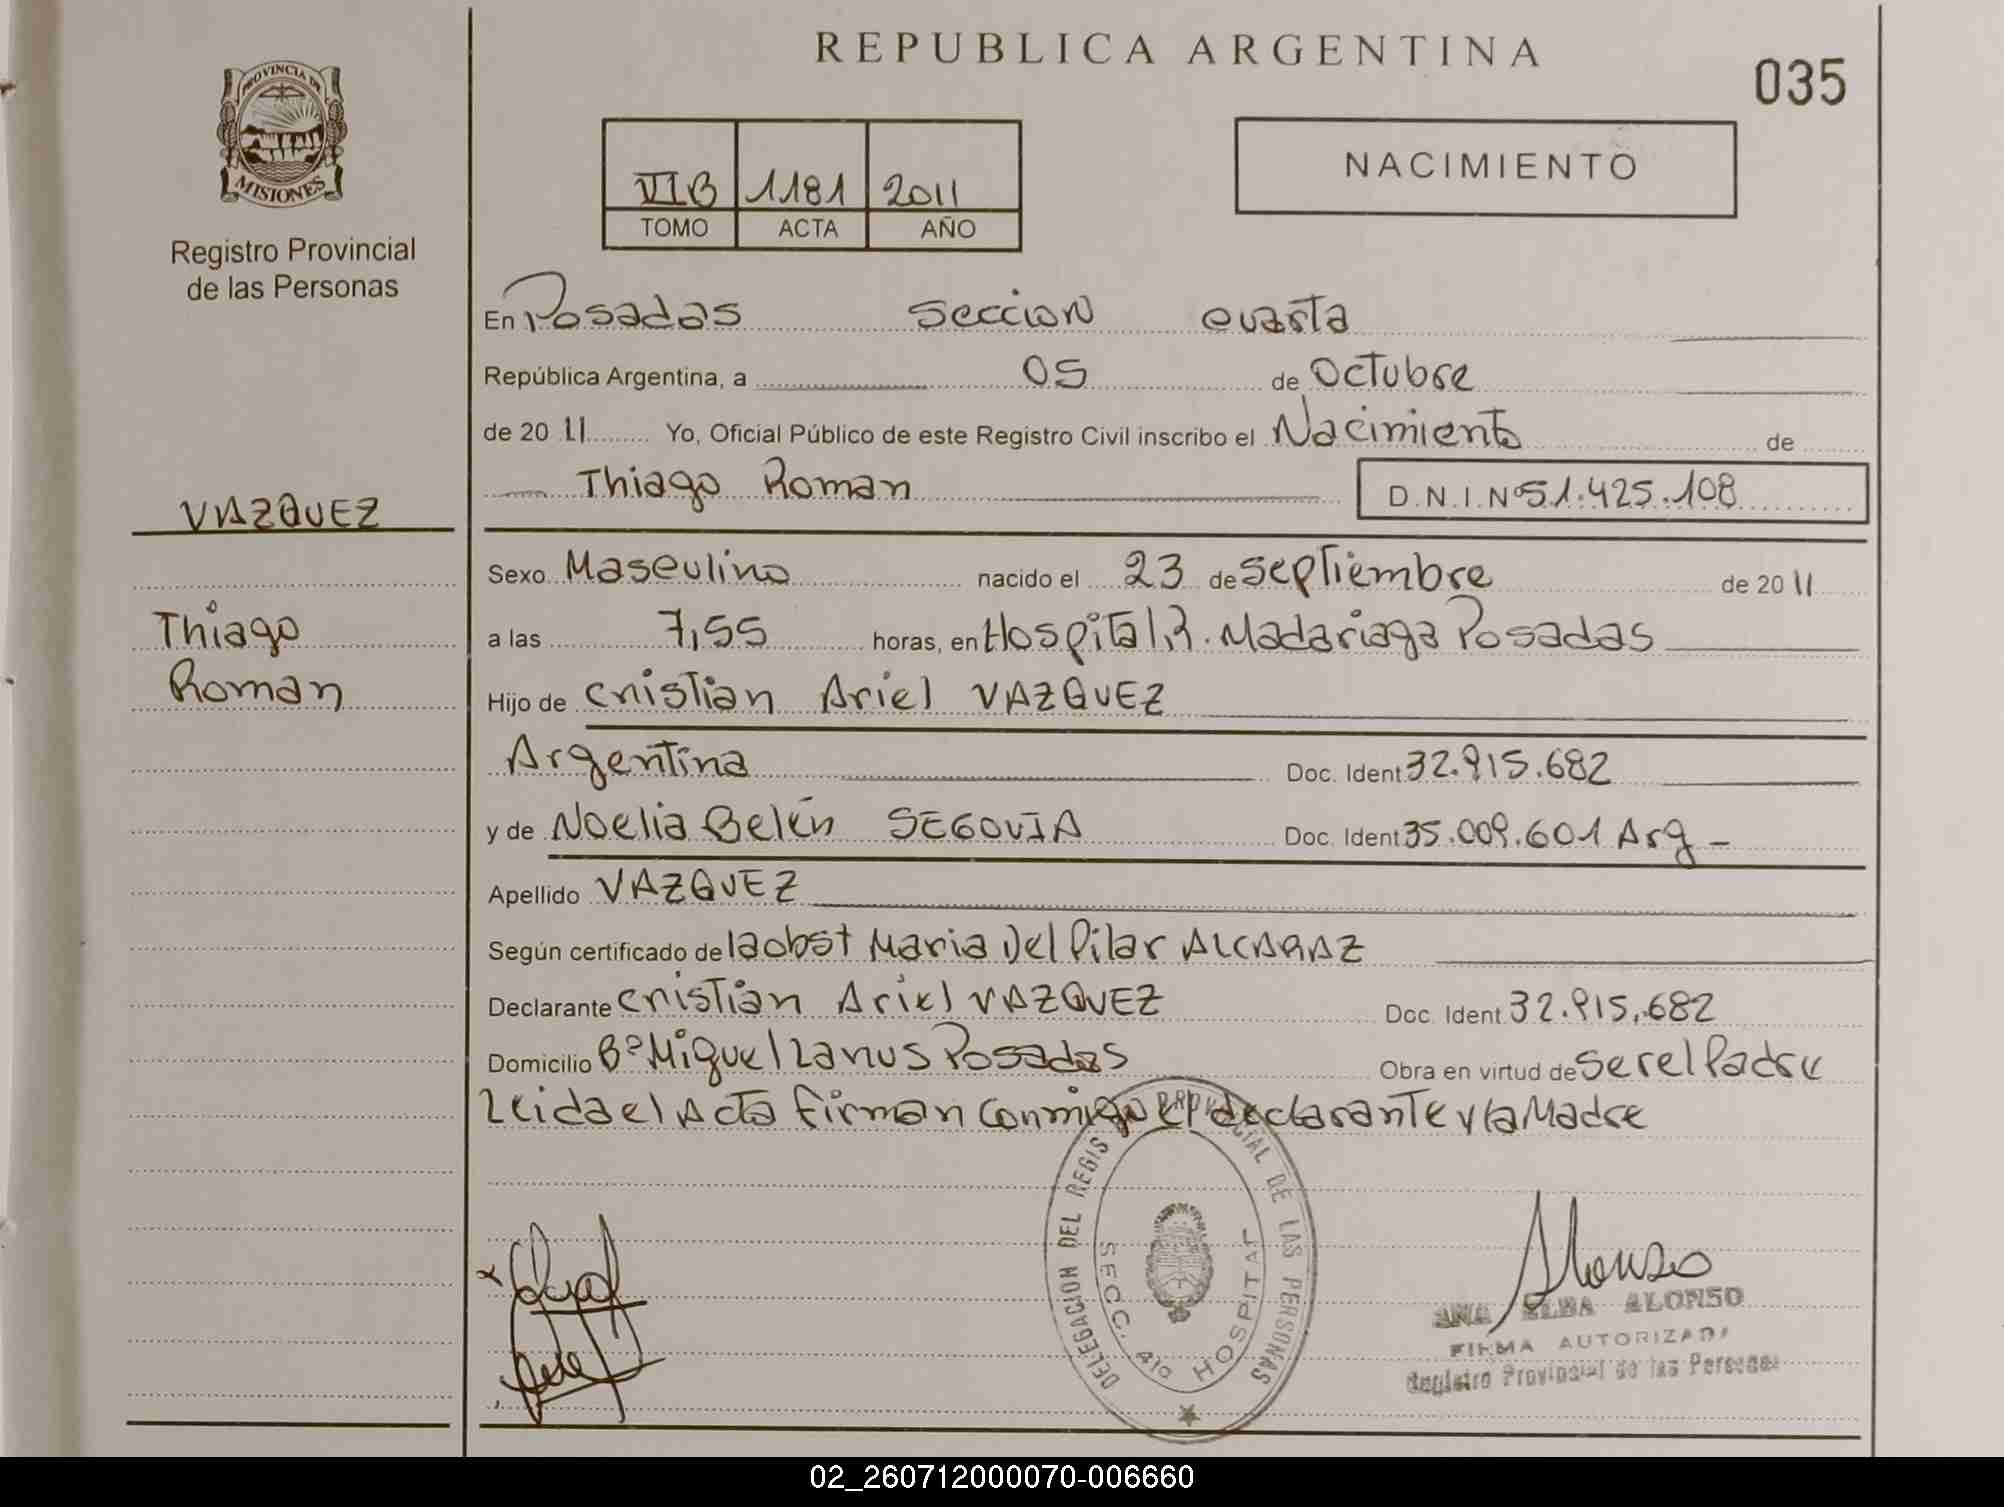 REPUBLICA ARGENTINA
035
PROVINCIA DE
MISIONES
Registro Provincial
de las Personas
VIB 1181 2011
TOMO ACTA AÑO
NACIMIENTO
En Posadas seccion cuarta
República Argentina, a 05 de Octubre
de 2011 Yo, Oficial Público de este Registro Civil inscribo el Nacimiento de
Thiago Roman D.N.I.Nº 51.425.108
VAZQUEZ
Thiago
Roman
Sexo Masculino nacido el 23 de septiembre de 2011
a las 7,55 horas, en Hospital R. Madariaga Posadas
Hijo de Cristian Ariel VAZQUEZ
Argentina Doc. Ident 32.915.682
y de Noelia Belén SEGOVIA Doc. Ident 35.009.601 Arg -
Apellido VAZQUEZ
Según certificado de la obst Maria Del Pilar ALCARAZ
Declarante Cristian Ariel VAZQUEZ Doc. Ident. 32.915.682
Domicilio Bº Miguel Lanus Posadas Obra en virtud de ser el Padre
Leida el Acta firman conmigo el declarante y la Madre
DELEGACION DEL REGIS PROVINCIAL DE LAS PERSONAS
SECC. 4ta HOSPITAL
Alonso
ANA ELBA ALONSO
FIRMA AUTORIZADA
Registro Provincial de las Personas
02_260712000070-006660